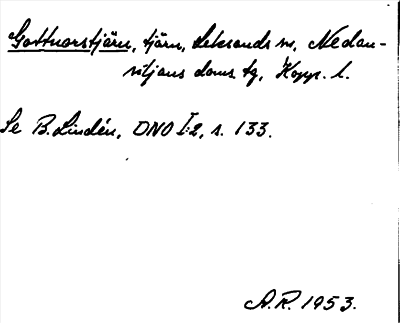 Gattnorstjärn, tjärn, Leksands sn, Nedan-
siljans doms. tg, Kopp. l.
Se B. Lindén, DNO I:2, s. 133.
A.R. 1953.